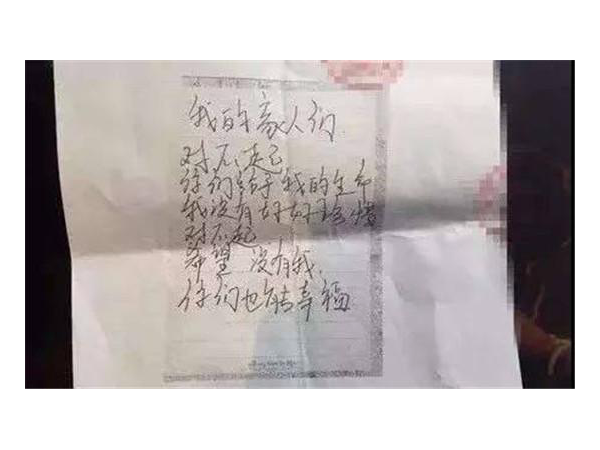 我的家人们
对不起
你们给予我的生命
我没有好好珍惜
对不起
希望 没有我,
你们也能幸福